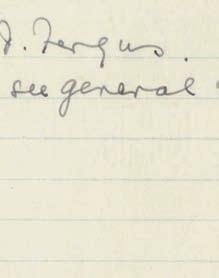 d. Fergus.
see general